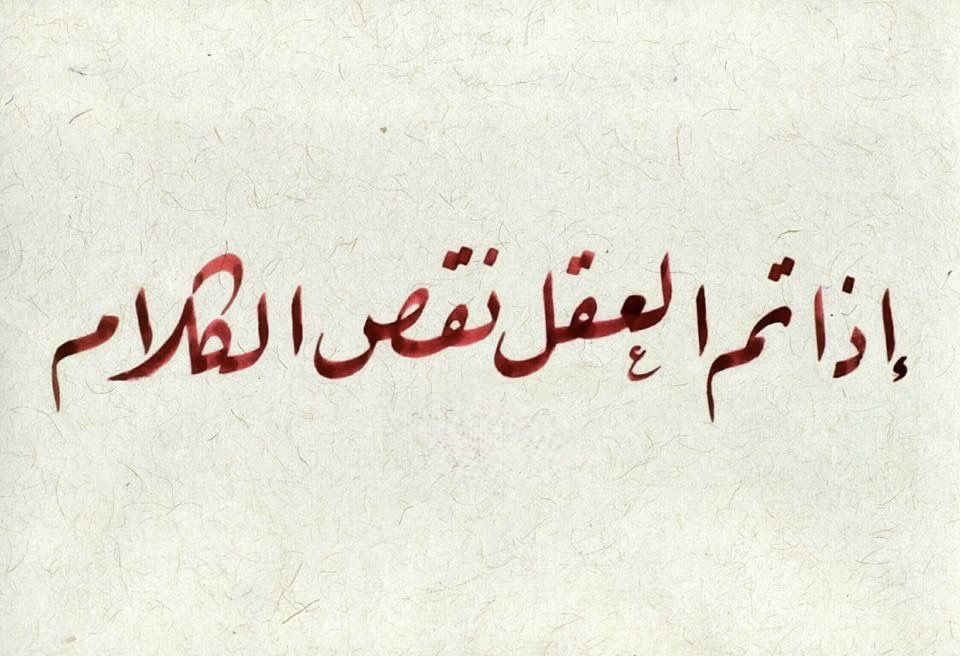 إذا تم العقل نقص الكلام